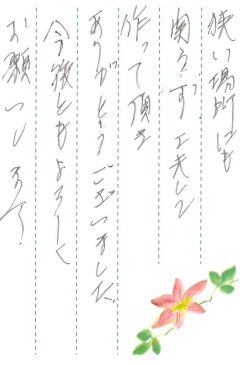 狭い場所にも
関らず、工夫して
作って頂き
ありがとうございました。
今後ともよろしく
お願いします。